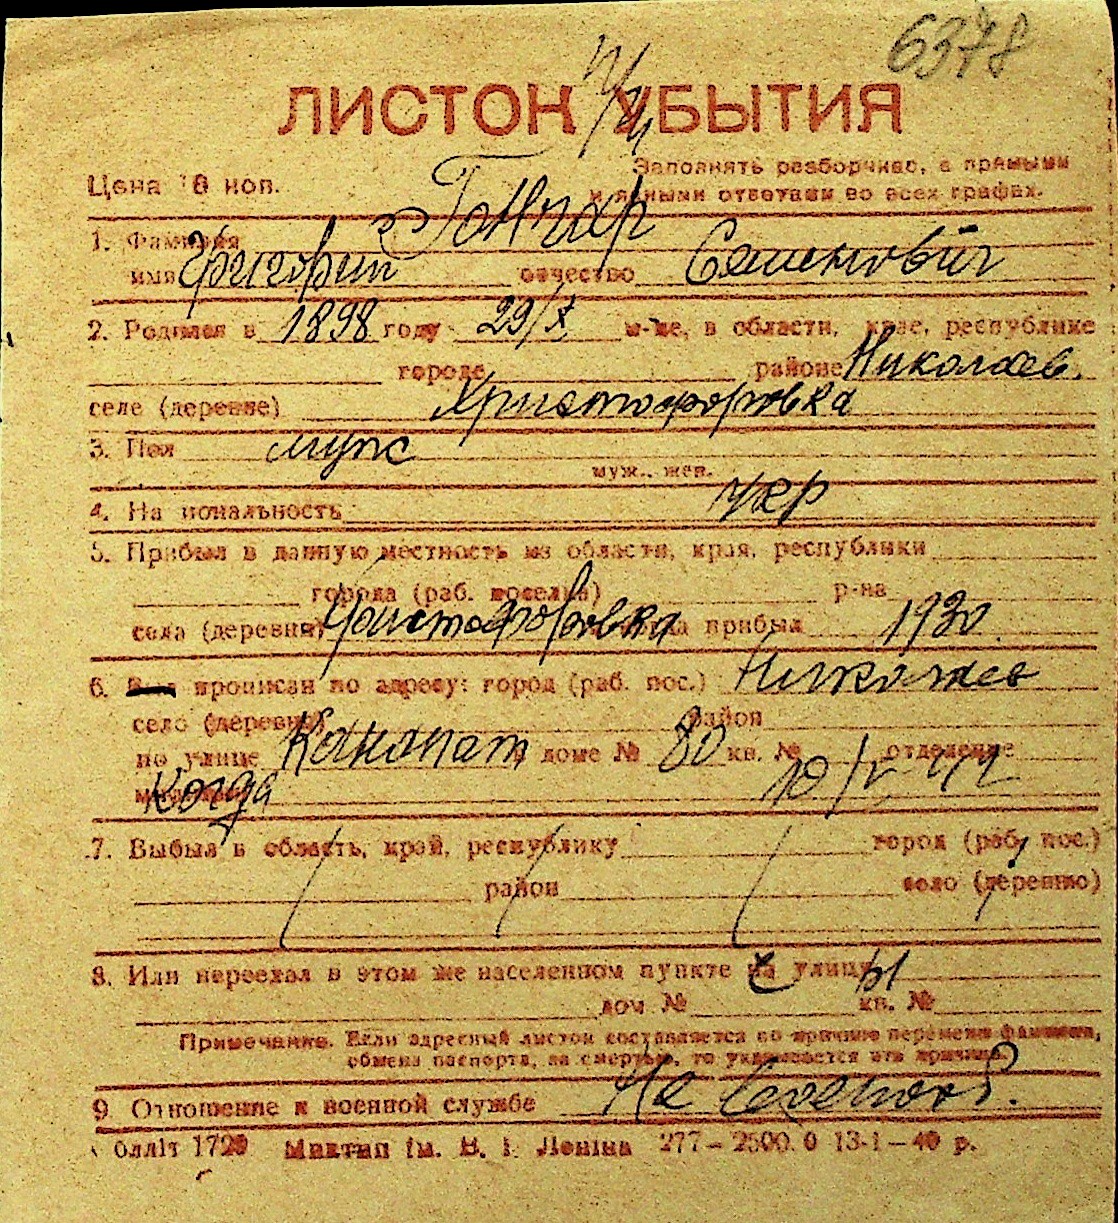 6378
ЛИСТОК УБЫТИЯ
Заполнять разборчиво, а прямыми
Цена 10 коп.
и ясными ответами во всех графах.
1. Фамилия Гончар
имя Григорий отчество Семенович
2. Родился в 1898 году 29/X м-це, в области, крае, республике
городе районе Николаев.
селе (деревне) Христофоровка
3. Пол мужс
муж., жен.
4. Национальность укр
5. Прибыл в данную местность из области, края, республики
города (раб. поселка) р-на
села (деревни) Христофоровка прибыл 1930
6. прописан по адресу: город (раб. пос.) Николаев
село (деревня) район
по улице Канонат доме № 80 кв. № отделение
Когда
7. Выбыл в область, край, республику город (раб. пос.)
район село (деревню)
8. Или переехал в этом же населенном пункте с улицы
дом № кв. №
Примечание. Если адресный листок составляется по причине перемены фамилии,
обмена паспорта, за смертью, то указывается эта причина.
9. Отношение к военной службе Не военноб.
Миктип ім. В. І. Леніна 277 – 2500.0 13-1 – 40 р.